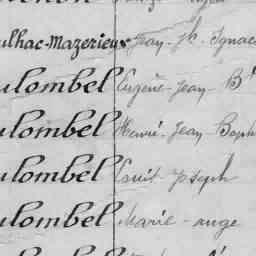 ulhac-Mazerieux Jean Jh Ignace
ulombel Eugène Jean Bt
ulombel Henri Jean Baph
ulombel Louis Joseph
ulombel Marie-ange